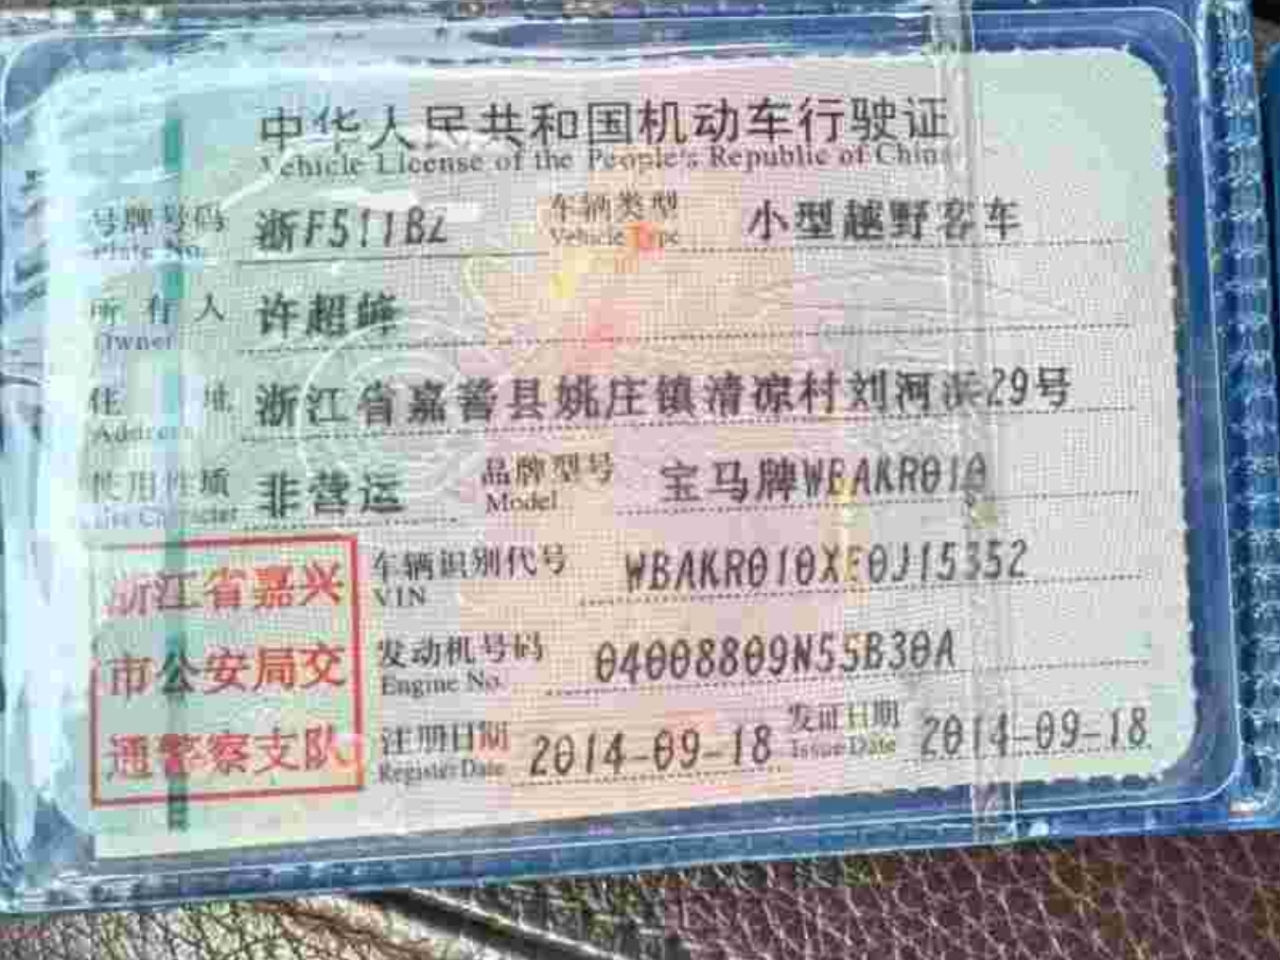 中华人民共和国机动车行驶证
Vehicle License of the People's Republic of China
号牌号码 浙F511BZ 车辆类型 小型越野客车
Plate No. Vehicle Type
所有人 许超峰
Owner
住址 浙江省嘉善县姚庄镇清凉村刘河浜29号
Address
使用性质 非营运 品牌型号 宝马牌WBAKR010
Use Character Model
浙江省嘉兴 车辆识别代号 WBAKR010XE0J15352
VIN
市公安局交 发动机号码 04008809N55B30A
Engine No.
通警察支队 注册日期 2014-09-18 发证日期 2014-09-18
Register Date Issue Date